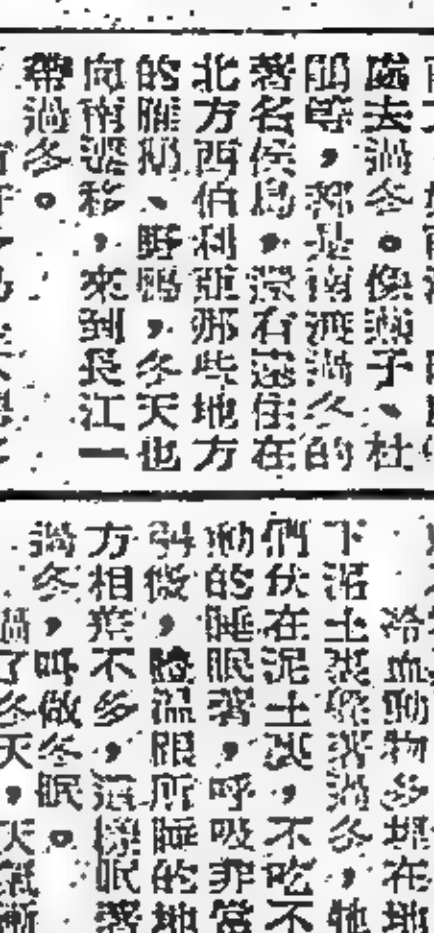 處去過冬。像燕子、杜
鵑等，都是南渡過冬的
著名候鳥，還有遠住在
北方西伯利亞那些地方
的雁鵝、野鴨，冬天也
向南遷移，來到長江一
帶過冬。
冷血動物多埋在地
下泥土裏躲著過冬，牠
們伏在泥土裏，不吃不
動的睡眠著，呼吸非常
微，體溫跟所睡的地
方相差不多，這樣眠著
過冬，叫做冬眠。
過了冬天，天氣漸